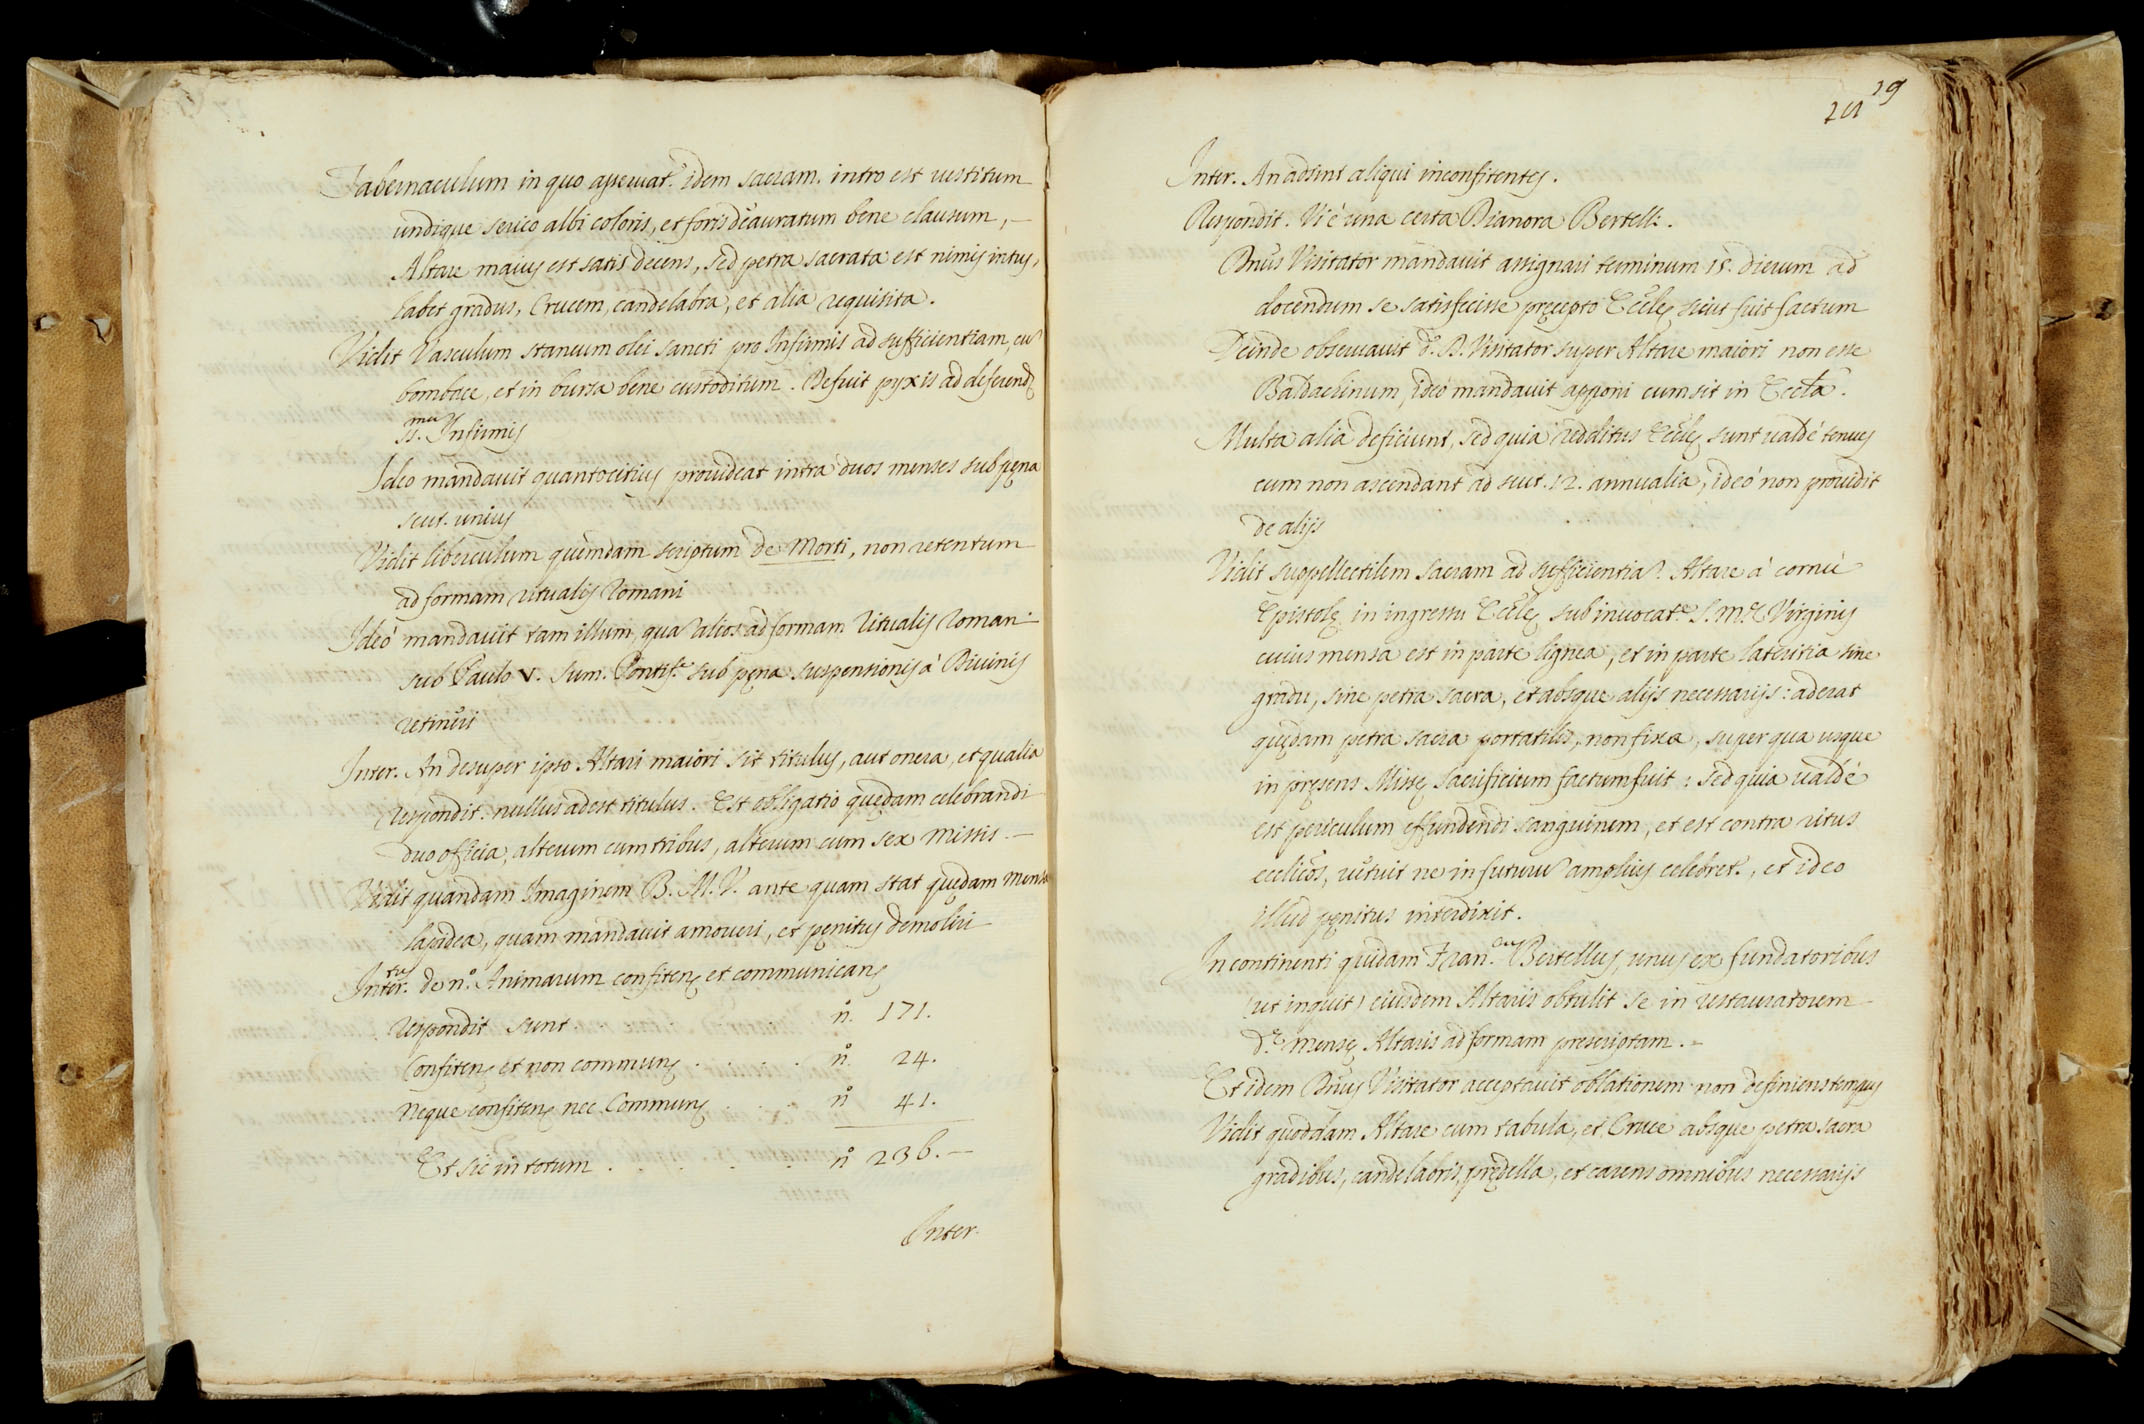 Tabernaculum in quo asseruat.r idem sacram. intro est uestitum
undique serico albi coloris, et foris deauratum bene clausum,
Altare maius est satis decens, sed petra sacrata est nimis intus,
habet gradus, Crucem, candelabra, et alia requisita.
Vidit Vasculum staneum olei sancti pro Infirmis ad sufficientiam, cu
bombace, et in bursa bene custoditum. Defuit pyxis ad deferendũ
ss.mu Infirmis
Ideo mandauit quantocitius prouideat intra duos menses sub pęna
scut. unius
Vidit liberculum quemdam scriptum de Morti, non retentum
ad formam ritualis Romani
Ideò mandauit tam illum, qua alios ad formam Ritualis Roman
sub Paulo V. Sum. Pontif.e sub pęna suspensionis à Diuinis
retineri
Inter. An desuper ipso Altari maiori sit titulus, aut onera, et qualia
respondit. nullus adest titulus. Est obligatio quędam celebrandi
duo officia, alterum cum tribus, alterum cum sex Missis
Vidit quandam Imaginem B. M. V. ante quam stat quędam mensa
lapidea, quam mandauit amoueri, et pęnitus demoliri
Inter.tus de n.o Animarum confiten. et communican.
respondit sunt . n.o 171.
Confiten. et non commun. . . . . n.o 24.
Neque confiten. nec Commun. . . . n.o 41.
Et sic in totum . . . . . n.o 236.
Inter.
19
Inter. An adsint aliqui inconfitentes.
Respondit. Vi è una certa Dianora Bertelli.
Dnũs Visitator mandauit assignari terminum 15. dierum ad
docendum se satisfecisse pręcepto Ecclę sicut fuit factum
Deinde obseruauit d.s D. Visitator super Altare maiori non esse
Baldachinum, ideo mandauit apponi cum sit in Eccla.
Multa alia deficiunt, sed quia redditus Ecclę sunt ualdè tenues
cum non ascendant ad scut. 12. annualia, ideò non prouidit
de alijs
Vidit suppellectilem sacram ad sufficientia. Altare à cornù
Epistolę in ingressu Ecclę sub inuocat.e S. M.e Virginis
cuius mensa est in parte lignea, et in parte lateritia sine
gradu, sine petra sacra, et absque alijs necessarijs: aderat
quędam petra sacra portatilis, non fixa, super qua usque
in pręsens Missę sacrificium factum fuit: sed quia ualdè
est periculum effundendi sanguinem, et est contra ritus
ecclicos, uetuit ne in futuru amplius celebret.r, et ideo
illud pęnitus interdixit.
In continenti quidam Fran.cus Bertellus, unus ex fundatoribus
(ut inquit) eiusdem Altaris obtulit se in restauratorem
d.ę mensę Altaris ad formam prescriptam.
Et idem Dnũs Visitator acceptauit oblationem non definiens tempus
Vidit quoddam Altare cum tabula, et Cruce absque petra sacra
gradibus, candelabris, prędella, et carens omnibus necessarijs